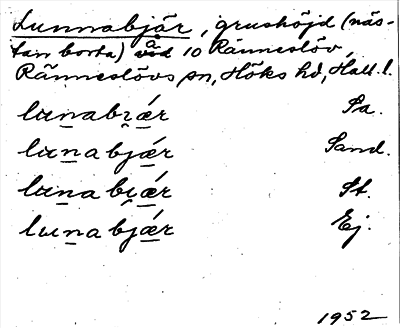 Lunnabjär, grushöjd (näs-
tan borta) å 10 Ränneslöv,
Ränneslövs sn, Höks hd, Hall. l.
lunabi̯ǽr Pa.
lunabjǽr Sand.
lunabi̯ǽr St.
lunabjǽr Ej.
1952